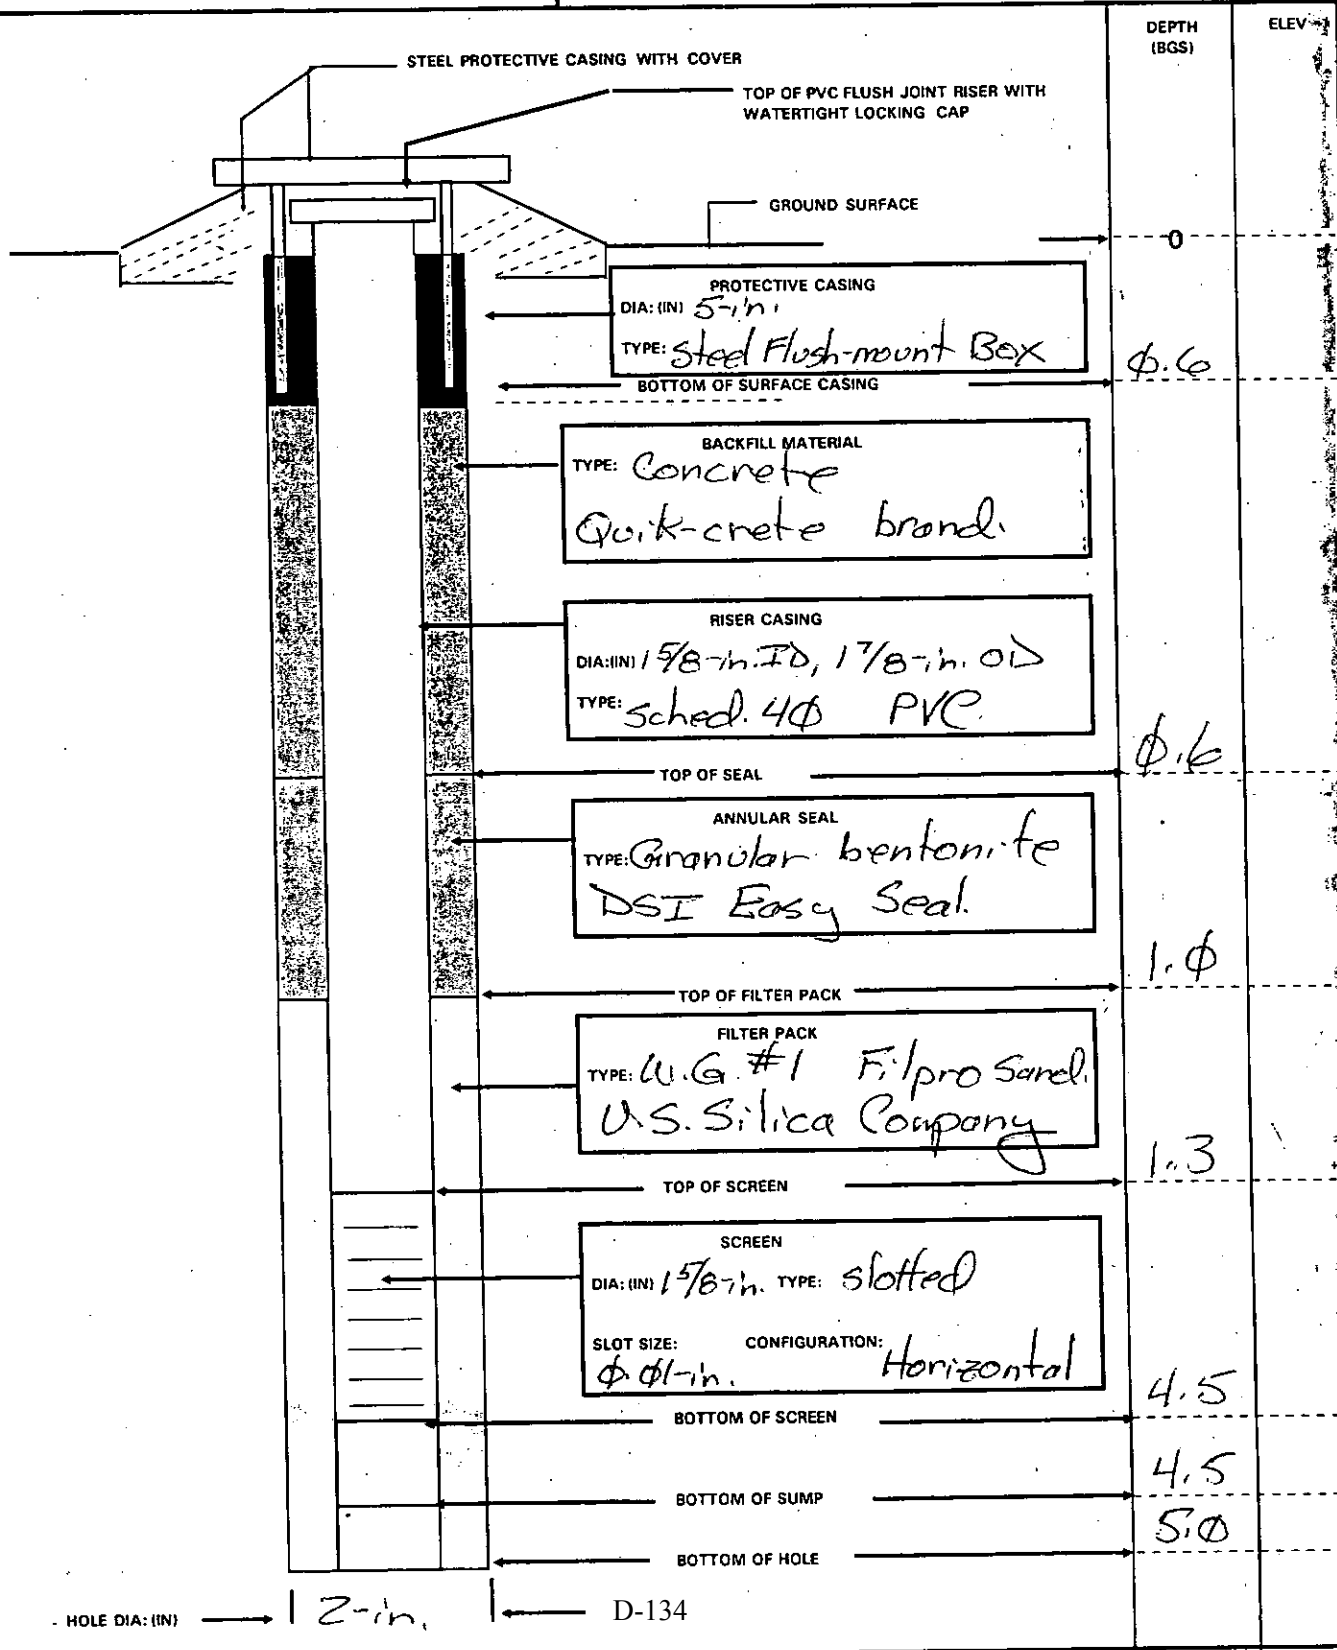 DEPTH
(BGS)
ELEV
STEEL PROTECTIVE CASING WITH COVER
TOP OF PVC FLUSH JOINT RISER WITH
WATERTIGHT LOCKING CAP
GROUND SURFACE
0
PROTECTIVE CASING
DIA: (IN) 5-in.
TYPE: Steel Flush-mount Box
0.6
BOTTOM OF SURFACE CASING
BACKFILL MATERIAL
TYPE: Concrete
Quik-crete brand.
RISER CASING
DIA:(IN) 1 5/8-in. ID, 1 7/8-in. OD
TYPE: Sched. 40 PVC.
0.6
TOP OF SEAL
ANNULAR SEAL
TYPE: Granular bentonite
DSI Easy Seal.
1.0
TOP OF FILTER PACK
FILTER PACK
TYPE: W.G. #1 Filpro Sand.
U.S. Silica Company
1.3
TOP OF SCREEN
SCREEN
DIA: (IN) 1 5/8-in. TYPE: slotted
SLOT SIZE: CONFIGURATION:
0.01-in. Horizontal
4.5
BOTTOM OF SCREEN
4.5
BOTTOM OF SUMP
5.0
BOTTOM OF HOLE
HOLE DIA: (IN) 2-in. D-134